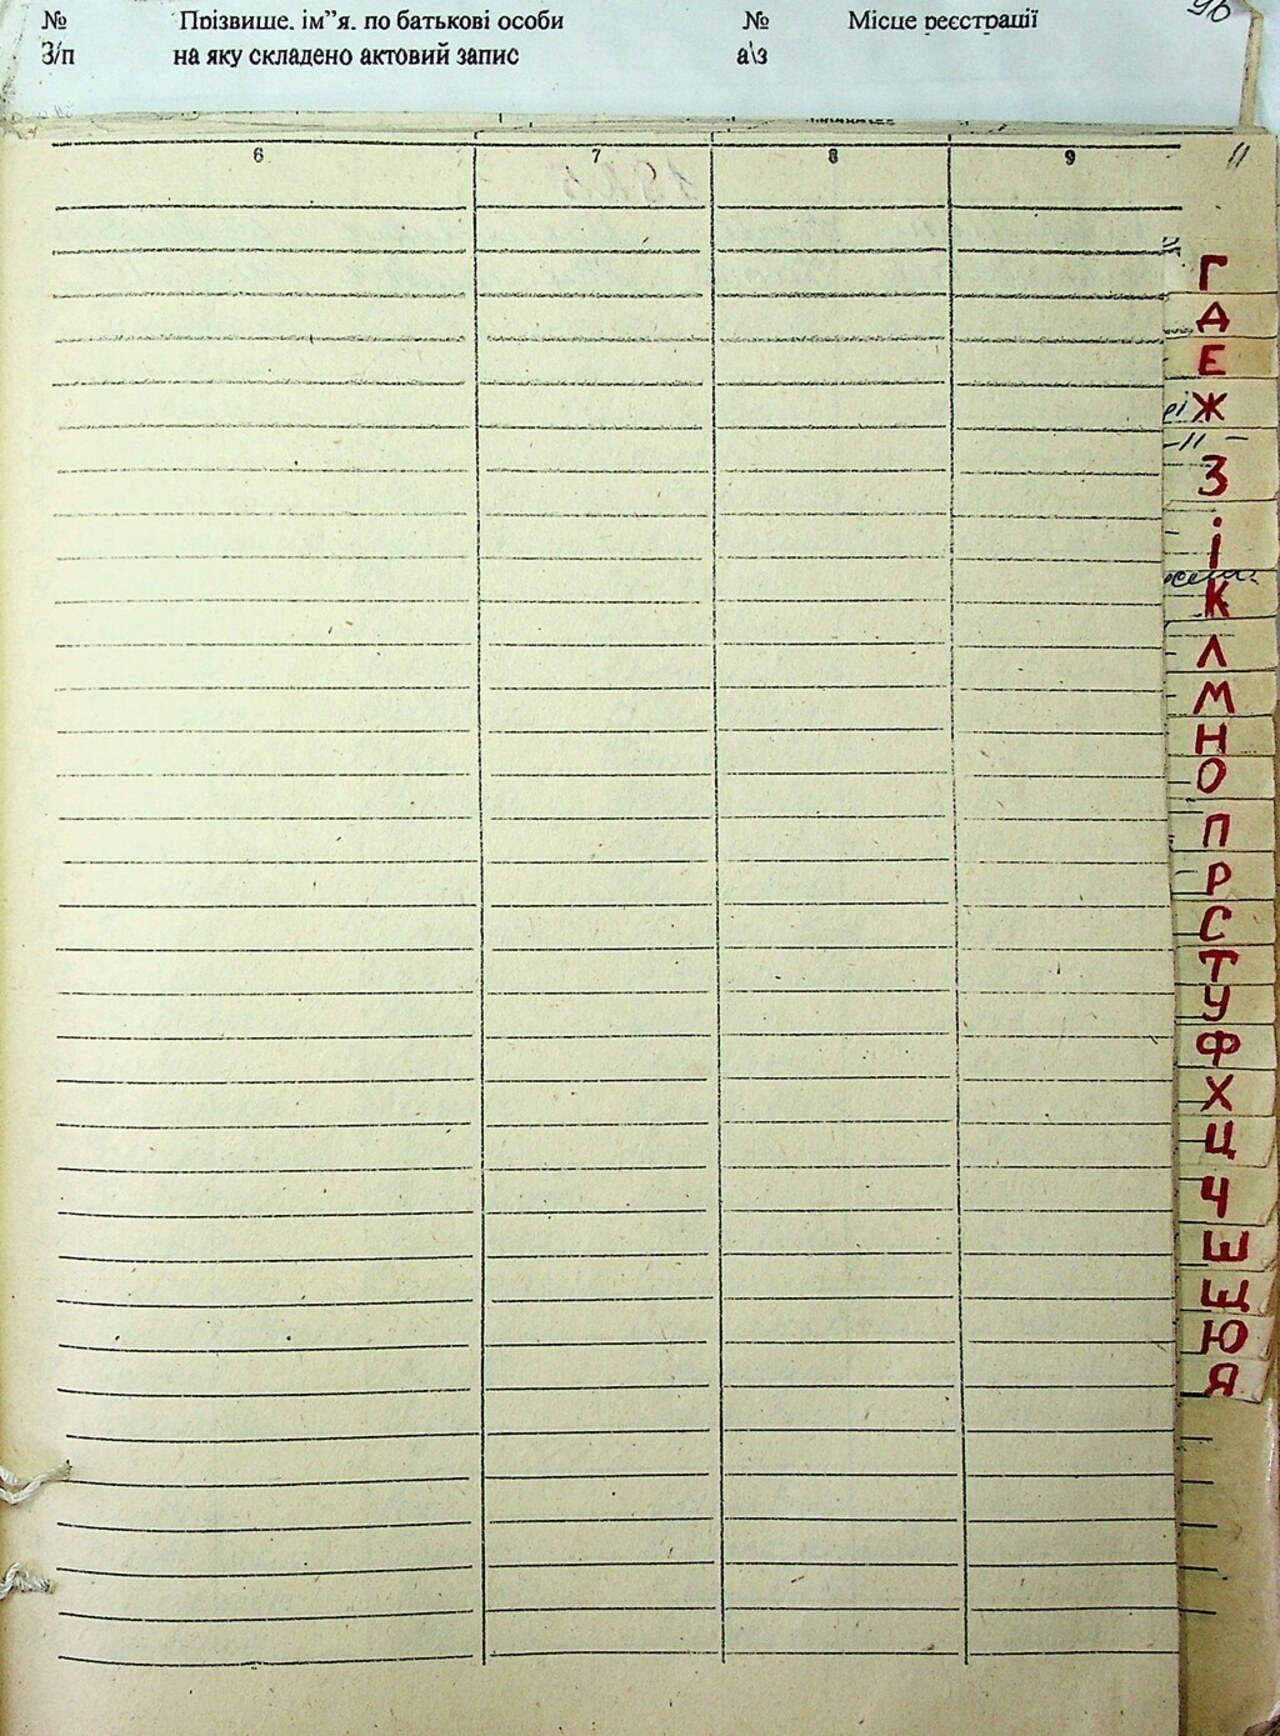 № Прізвище, ім”я, по батькові особи № Місце реєстрації 96
З/п на яку складено актовий запис а\з
6 7 8 9 11
Г
Д
Е
Ж
-11-
З
і
К
Л
М
Н
О
П
Р
С
Т
У
Ф
Х
Ц
Ч
Ш
Щ
Ю
Я